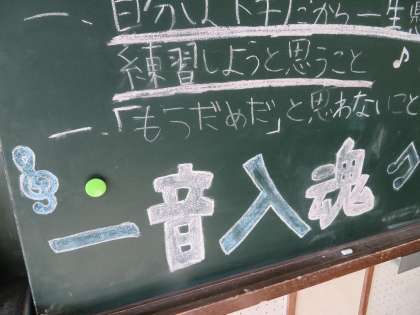 一、自分は下手だから一生懸
練習しようと思うこと
一、「もうだめだ」と思わないこと
一音入魂